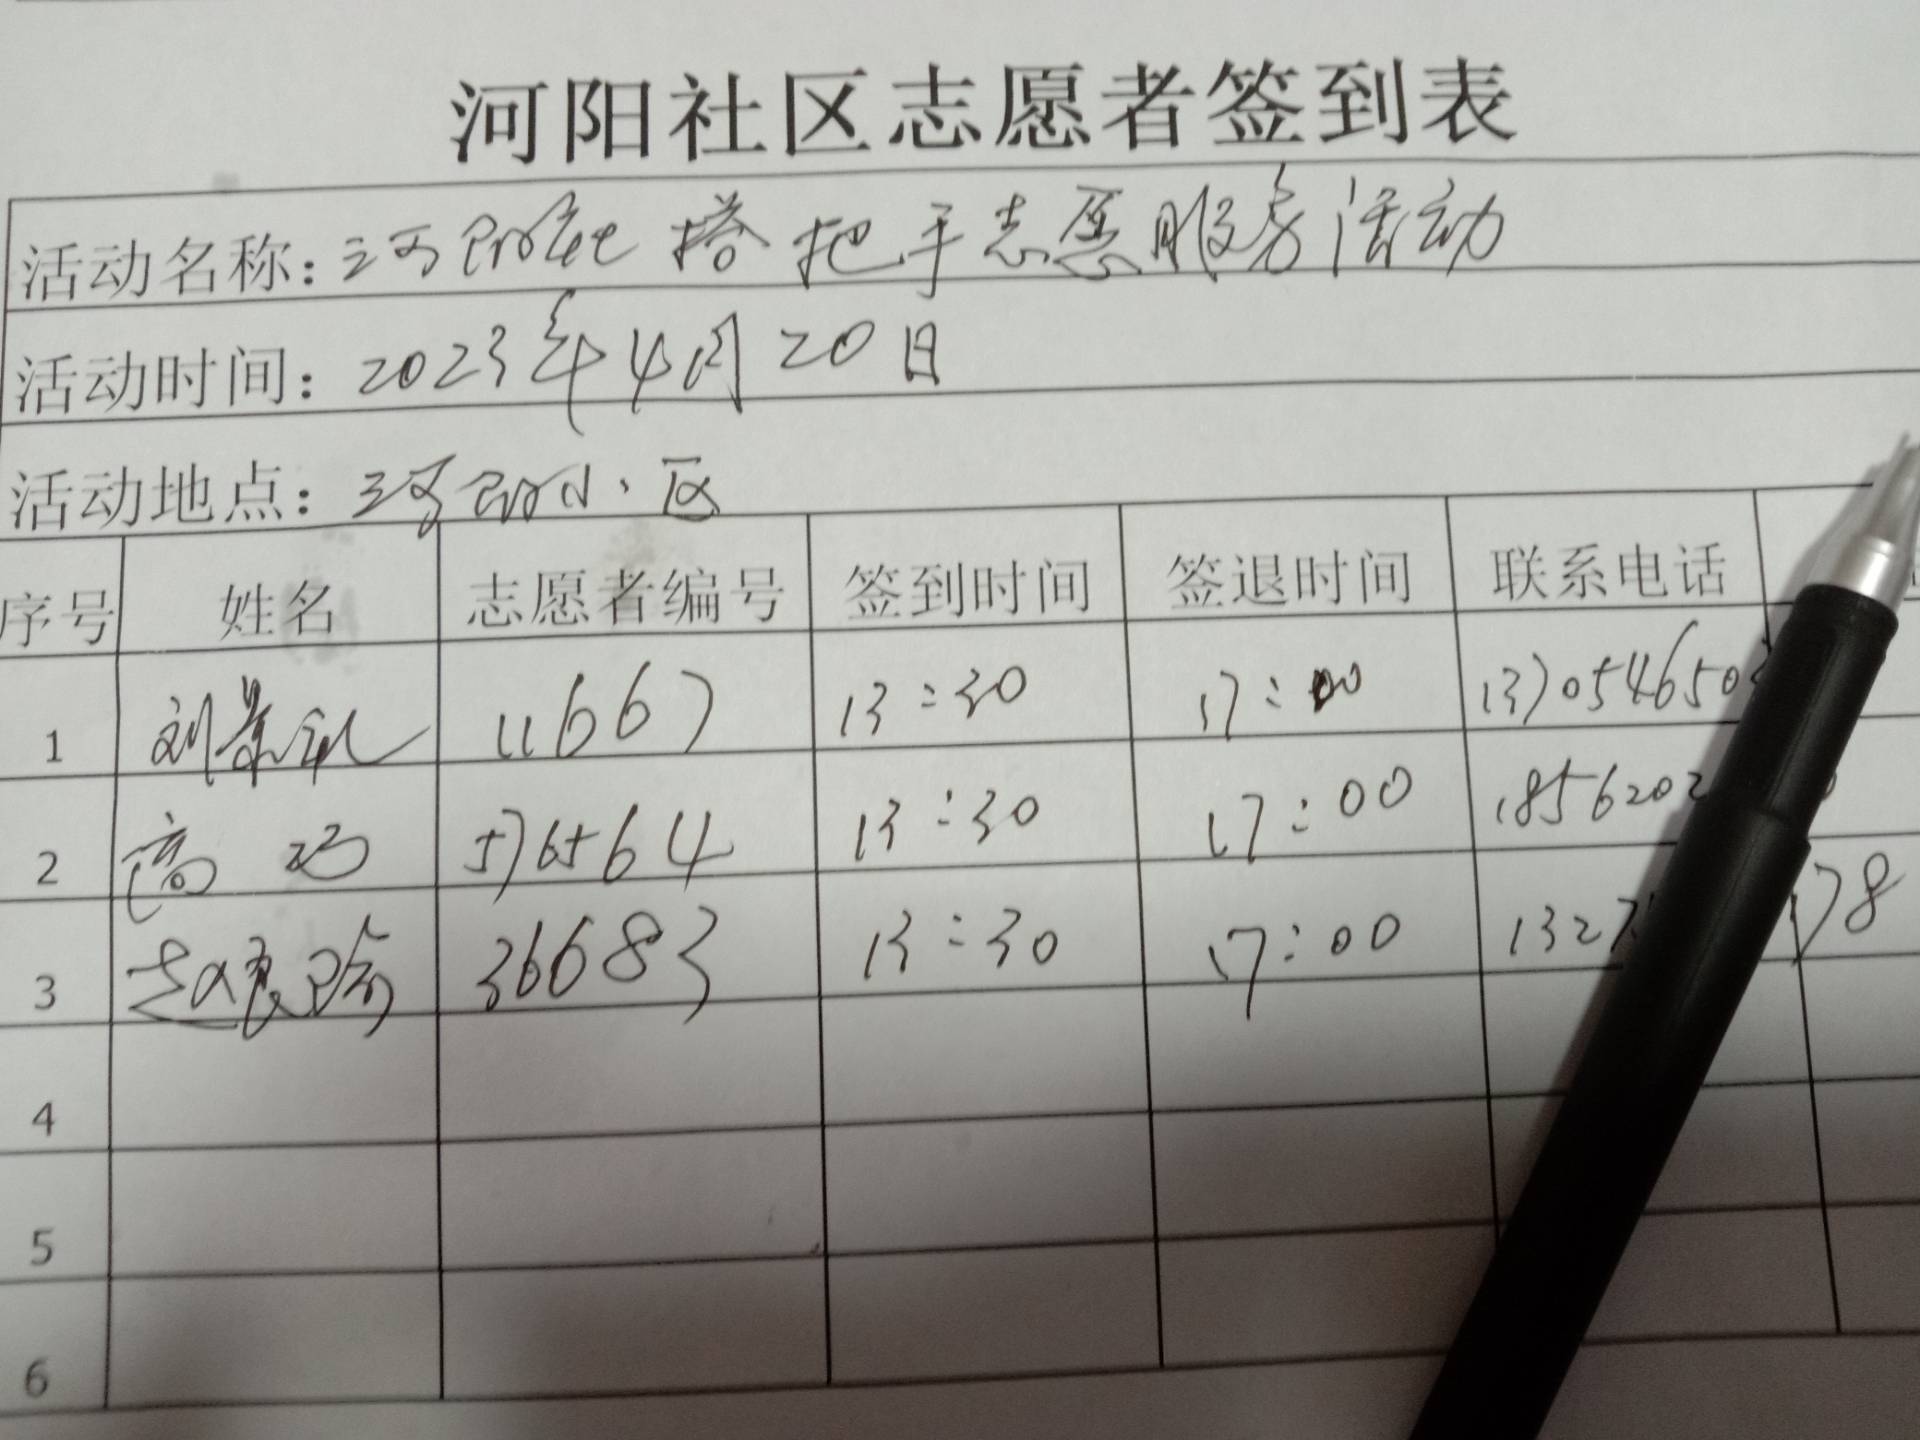 河阳社区志愿者签到表
活动名称：河阳社 搭把手志愿服务活动
活动时间：2023年4月20日
活动地点：河阳小区
序号 姓名 志愿者编号 签到时间 签退时间 联系电话
1 刘景 11667 13:30 17:00 1370546503
2 高巧 576564 13:30 17:00 1856202
3 赵 36683 13:30 17:00 1327 178
4
5
6